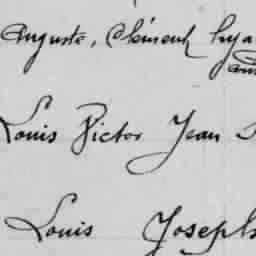 Auguste, Clément
Louis Victor Jean
Louis Joseph